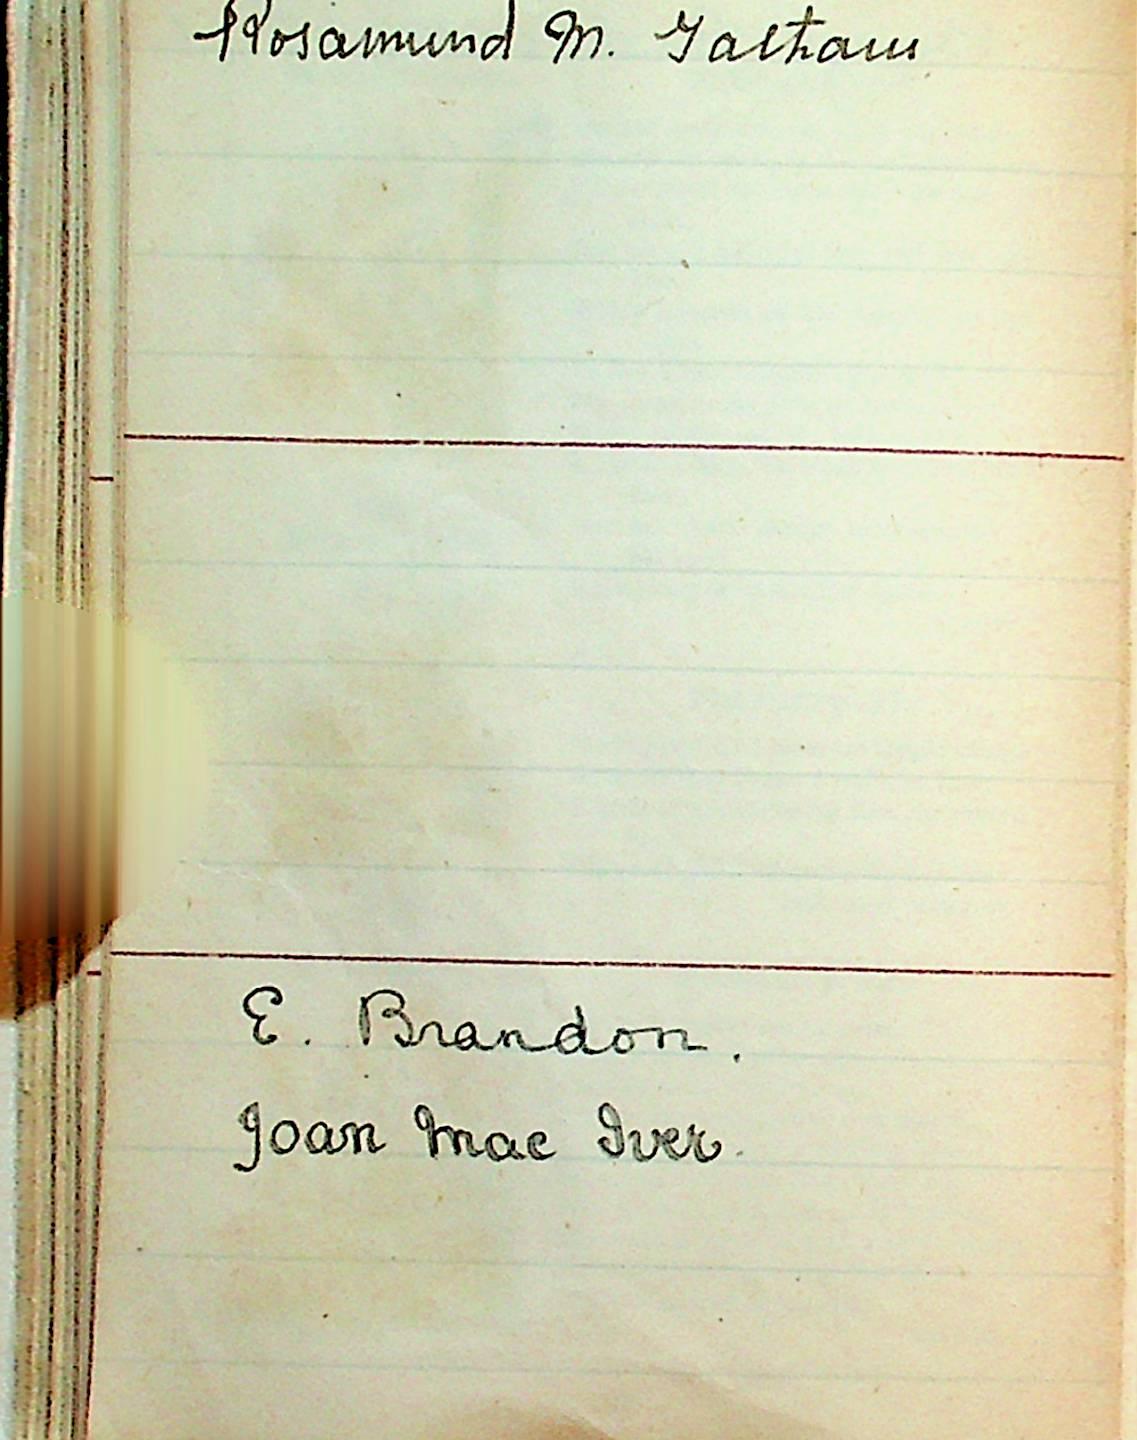 Rosamund M. Galtham
E. Brandon.
Joan Mac Iver.